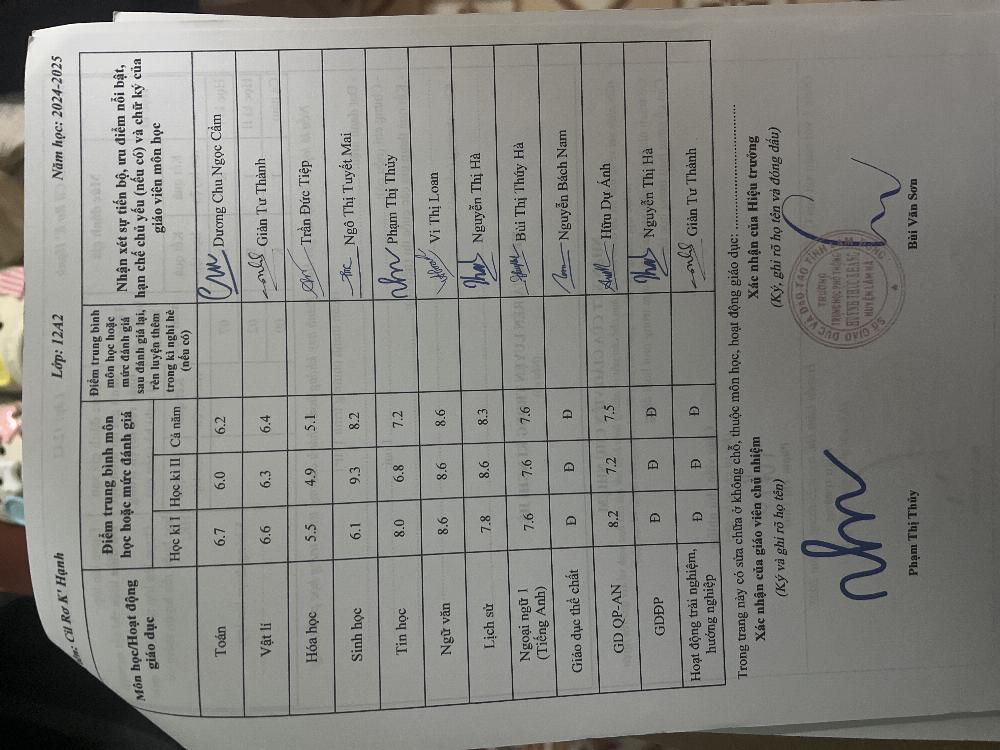 ên: Cil Rơ K' Hạnh Lớp: 12A2 Năm học: 2024-2025
Môn học/Hoạt động giáo dục
Điểm trung bình môn học hoặc mức đánh giá
Điểm trung bình môn học hoặc mức đánh giá sau đánh giá lại, rèn luyện thêm trong kì nghỉ hè (nếu có)
Nhận xét sự tiến bộ, ưu điểm nổi bật, hạn chế chủ yếu (nếu có) và chữ ký của giáo viên môn học
Học kì I Học kì II Cả năm
Toán 6.7 6.0 6.2 Dương Chu Ngọc Cầm
Vật lí 6.6 6.3 6.4 Giản Tư Thành
Hóa học 5.5 4.9 5.1 Trần Đức Tiệp
Sinh học 6.1 9.3 8.2 Ngô Thị Tuyết Mai
Tin học 8.0 6.8 7.2 Phạm Thị Thủy
Ngữ văn 8.6 8.6 8.6 Vi Thị Loan
Lịch sử 7.8 8.6 8.3 Nguyễn Thị Hà
Ngoại ngữ 1 (Tiếng Anh) 7.6 7.6 7.6 Bùi Thị Thúy Hà
Giáo dục thể chất Đ Đ Đ Nguyễn Bách Nam
GD QP-AN 8.2 7.2 7.5 Hữu Dự Ánh
GDĐP Đ Đ Đ Nguyễn Thị Hà
Hoạt động trải nghiệm, hướng nghiệp Đ Đ Đ Giản Tư Thành
Trong trang này có sửa chữa ở không chỗ, thuộc môn học, hoạt động giáo dục: ................................
Xác nhận của giáo viên chủ nhiệm
(Ký và ghi rõ họ tên)
Phạm Thị Thủy
Xác nhận của Hiệu trưởng
(Ký, ghi rõ họ tên và đóng dấu)
TRƯỜNG
HUYỆN LÂM HÀ
Bùi Văn Sơn